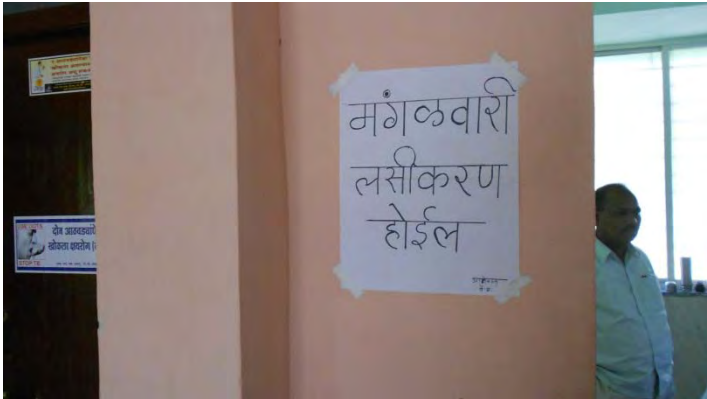 मंगळवारी
लसीकरण
होईल
दोन आठवड्यांचे
खोकला क्षयरोग
STOP TB